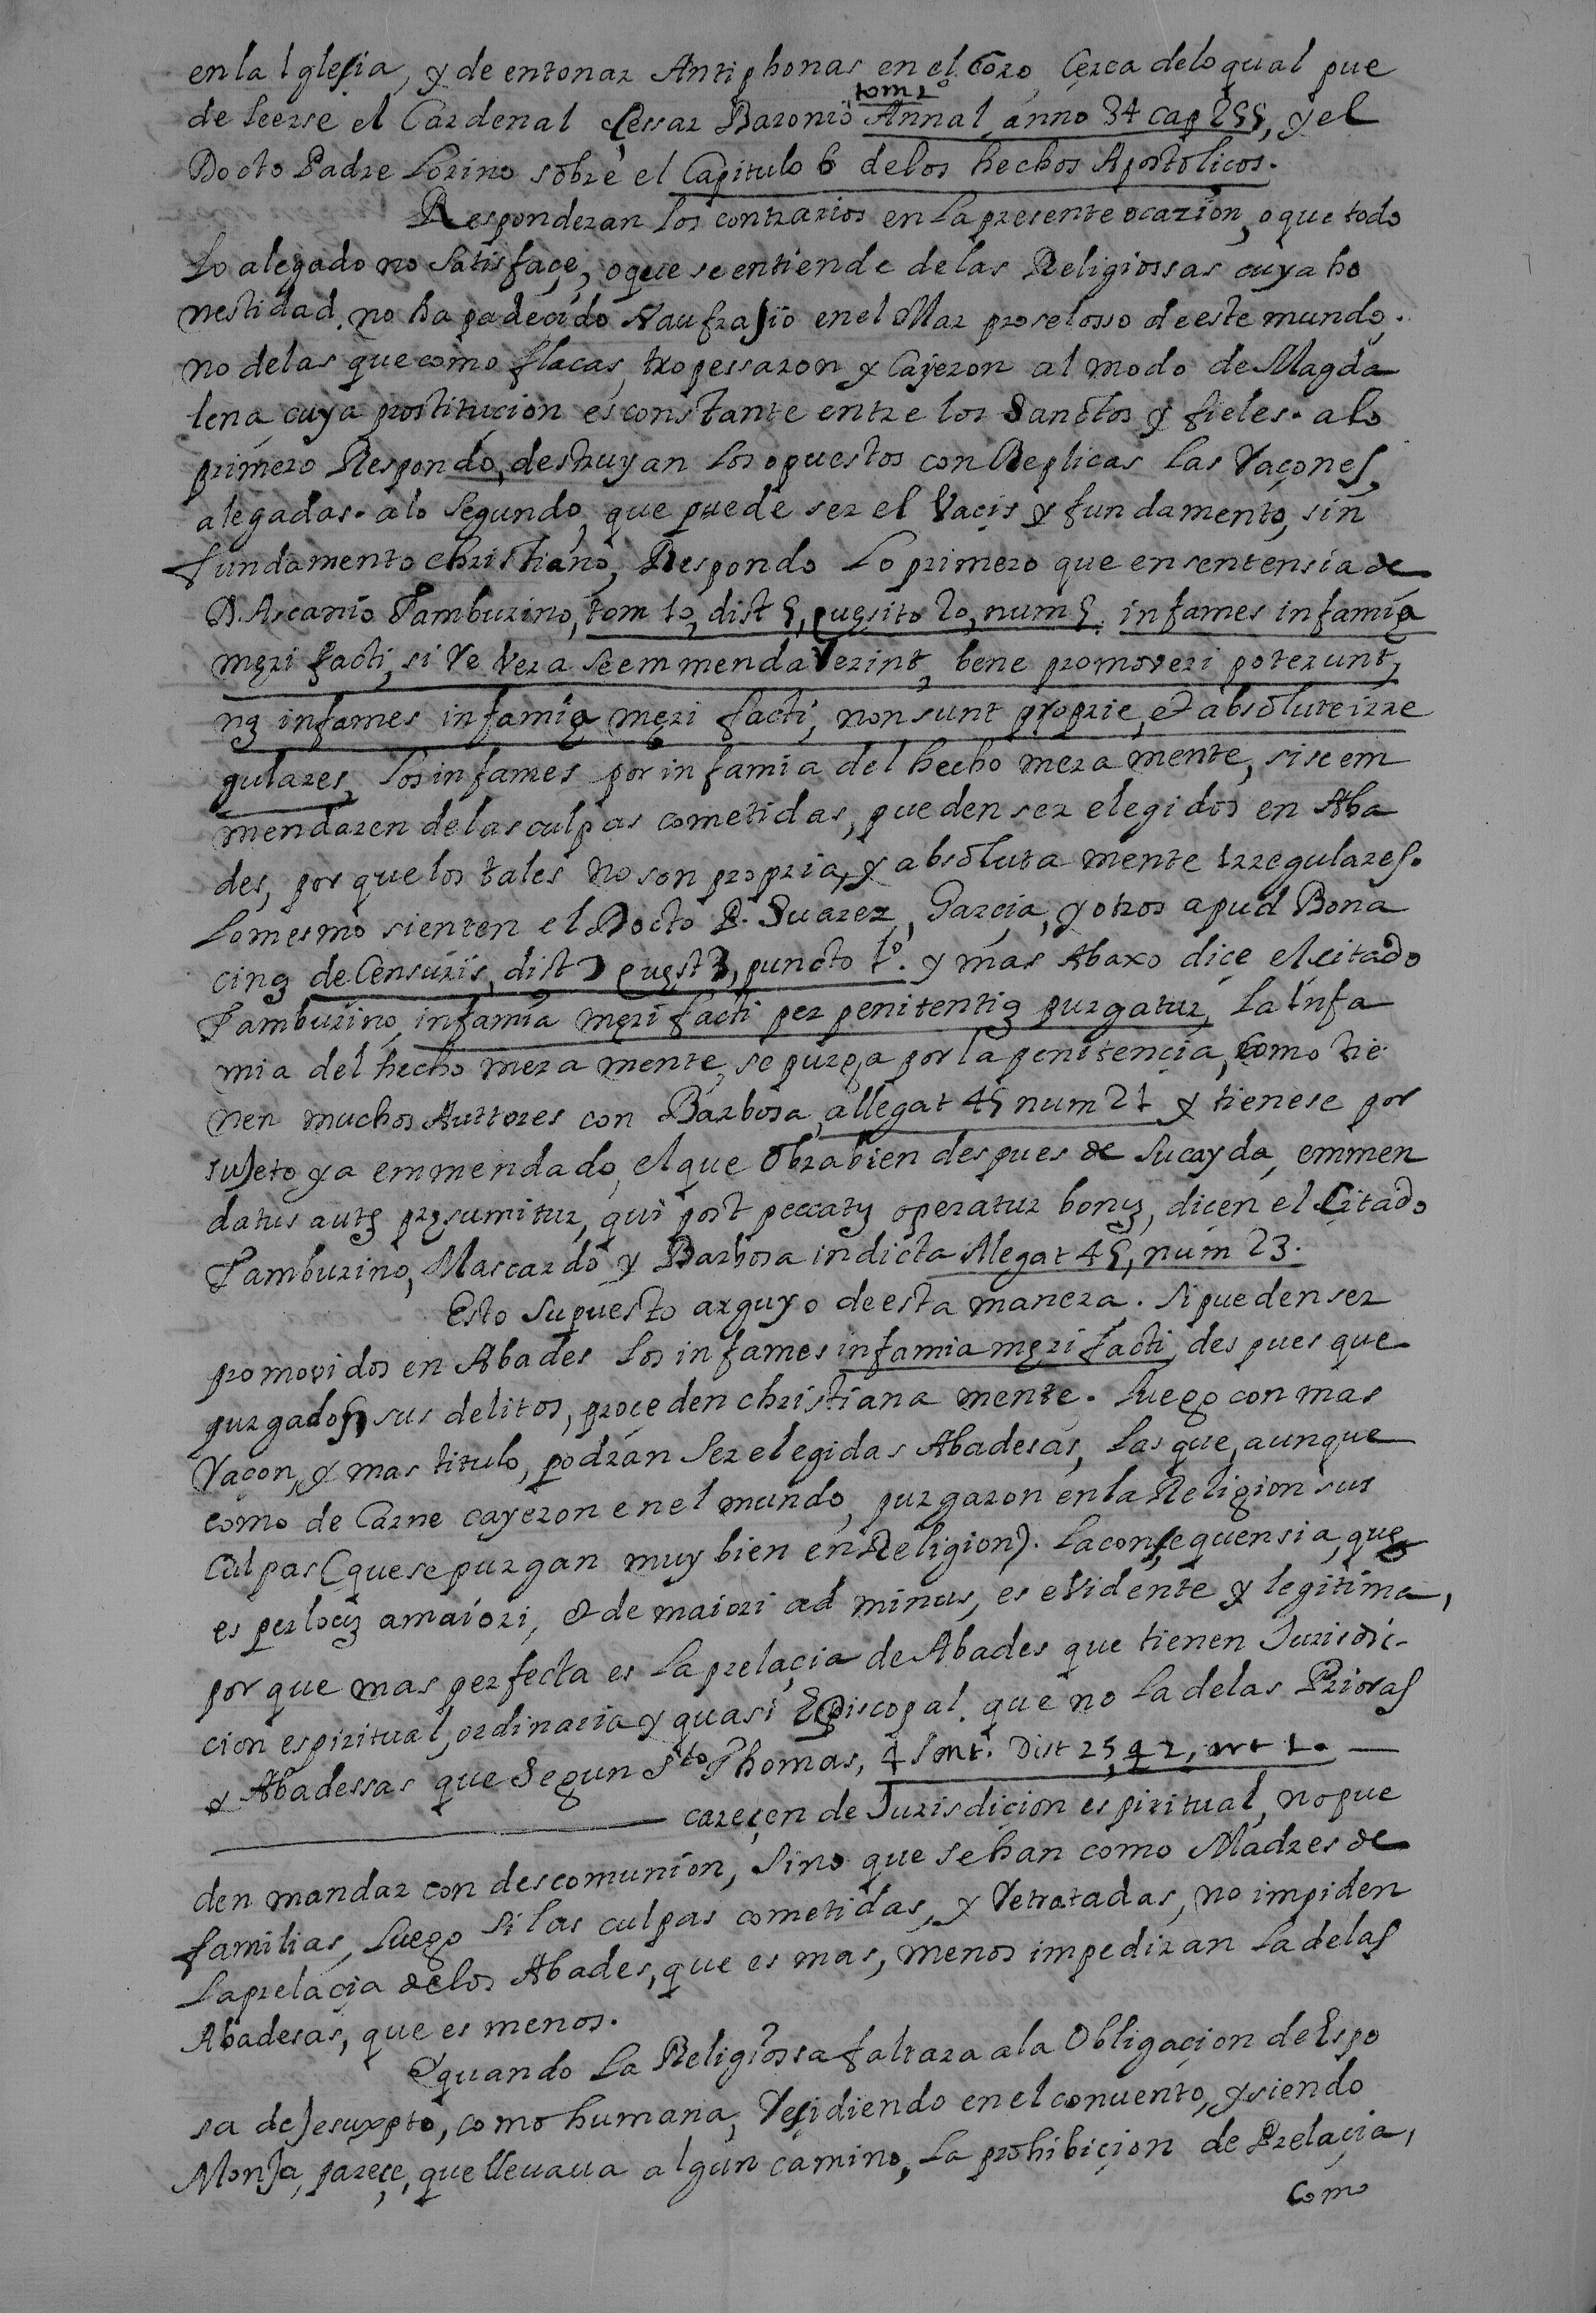 en la Iglesia, y de entonar Antiphonas en el Coro, Cerca de lo qual pue
tom 1º
de leerse el Cardenal Çessar Baronio Annal anno 34 cap 255, y el
Docto Padre Lorino sobre el Capitulo 6 de los hechos Apostolicos.
Responderan los contrarios en la presente ocazion, o que todo
Lo alegado no Satisface, o que se entiende de las Religiossas cuya ho
nestidad, no ha padecido Naufrajio en el Mar proselosso de este mundo.
no de las que como flacas, tropessaron y Cayeron al modo de Magda
lena, cuya prostitucion es constante entre los Sanctos y fieles. a lo
primero Respondo, destruyan los opuestos con Replicas las Raçones,
alegadas. a lo Segundo, que puede ser el Vacis y fundamento, sin
fundamento christiano, Respondo Lo primero que en sentensia de
D. Ascanio Tamburino, tom 1o, dist 5, quęsito 20, num 5. infames infamia
męri facti, si re vera se emmendaverint, bene promoveri poterunt,
nã infames infamia męri facti, non sunt proprie, et absolute irre
gulares, Los infames por infamia del hecho mera mente, si se em
mendaren de las culpas cometidas, pueden ser elegidos en Aba
des, por que los tales no son propria, y absoluta mente Irregulares.
Lo mesmo sienten el Docto P. Suarez, Garcia, y otros apud Bona
cinã de Censuris, dist 7 quęst 3, puncto 1º. y mas Abaxo dice el citado
Tamburino, infamia męri facti per penitentiã purgatur, La Infa
mia del hecho mera mente, se purga por la penitencia, Como tie
nen muchos Auttores con Barbosa, allegat 45 num 21 y tienese por
sujeto ya emmendado, el que Obra bien despues de su cayda, emmen
datus autẽ pręsumitur, qui post peccatũ operatur bonũ, dicen el Citado
Tamburino, Mascardo y Barbosa in dicta Alegat 45, num 23.
Esto Supuesto arguyo de esta manera. Si pueden ser
promovidos en Abades Los infames infamia męri facti, des pues que
purgados, sus delitos, proceden christiana mente. Luego con mas
Raçon, y mas titulo, podran Ser elegidas Abadesas, Las que, aunque
como de Carne cayeron en el mundo, purgaron en la Religion sus
Culpas (que se purgan muy bien en Religion). La consequensia, que
es per locũ a maiori, et de maiori ad minus, es evidente y legitima,
por que mas perfecta es La prelacia de Abades que tienen Jurisdic-
cion espiritual, ordinaria y quasi Episcopal. que no La de las Prioras
y Abadessas que Segun Sto Thomas, 4 Sent. Dist 25, q 2, art 1. —
— careçen de Jurisdicion espiritual, no pue
den mandar con descomunion, Sino que se han como Madres de
familias, Luego Si las culpas cometidas, y Retratadas, no impiden
La prelacia de los Abades, que es mas, menos impediran La de las
Abadesas, que es menos.
Y quando La Religiossa faltara a la Obligacion de Espo
sa de Jesuxpto, como humana, Residiendo en el convento, y siendo
Monja, pareçe, que llevava algun camino, La prohibicion de Prelacia,
Como